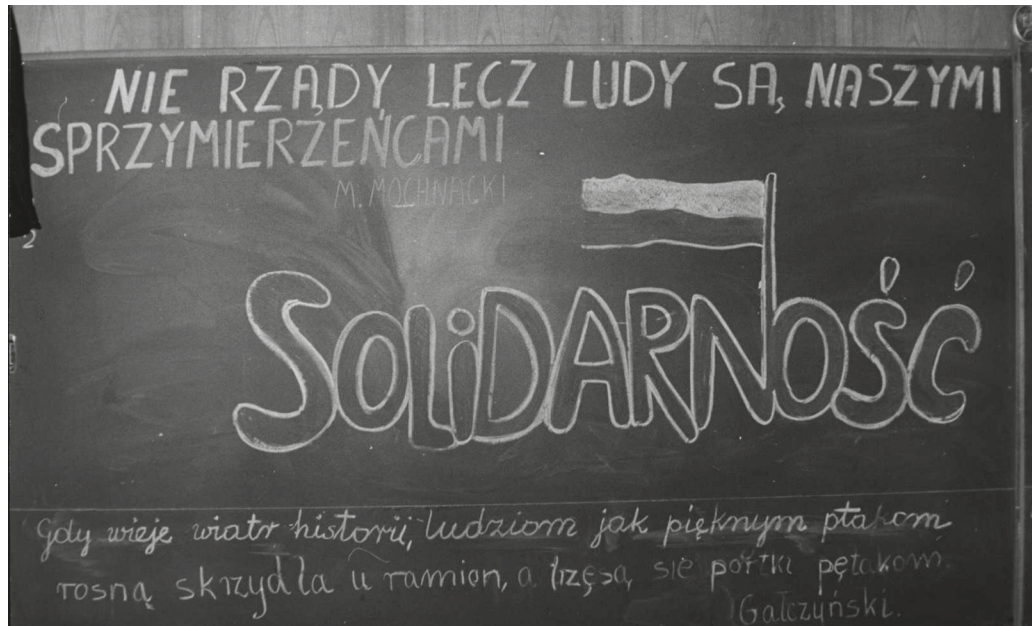 NIE RZĄDY, LECZ LUDY SĄ NASZYMI
SPRZYMIERZEŃCAMI
M. MOCHNACKI
2
SOLiDARNOŚĆ
Gdy wieje wiatr historii, ludziom jak pięknym ptakom
rosną skrzydła u ramion, a trzęsą się portki pętakom.
Gałczyński.